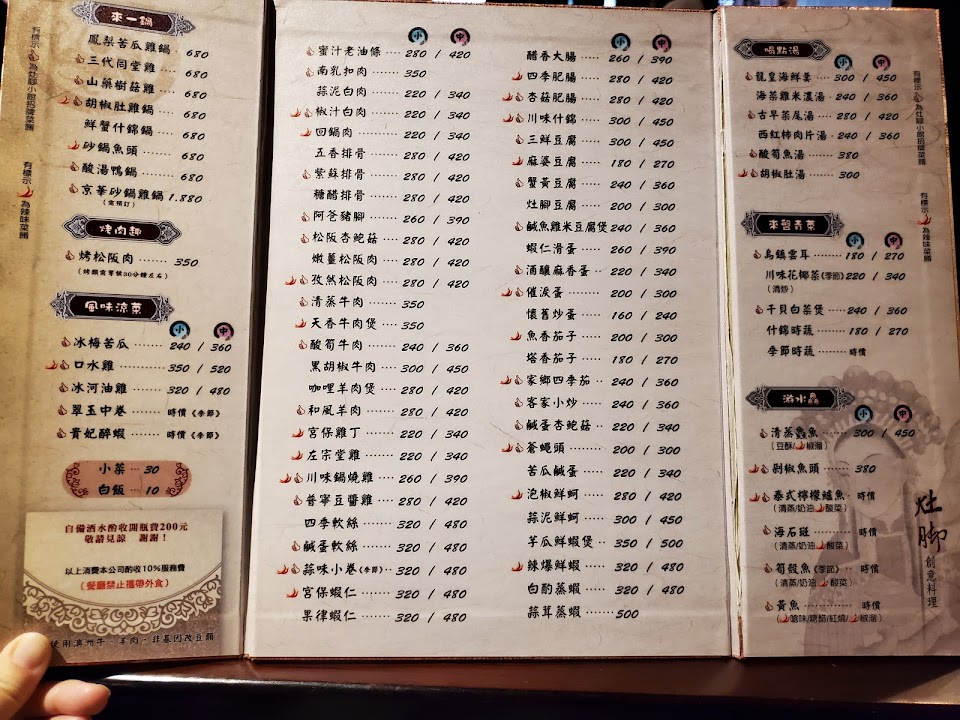 有標示👍為灶腳小館招牌菜餚
有標示🌶為辣味菜餚
來一鍋
鳳梨苦瓜雞鍋 680
三代同堂雞 ‧‧ 680
山藥樹菇雞 680
胡椒肚雞鍋 ‧‧ 680
鮮蟹什錦鍋 ‧‧ 680
砂鍋魚頭 ‧‧‧‧‧‧‧ 680
酸湯鴨鍋 ‧‧‧‧‧‧‧ 680
京華砂鍋雞鍋 1.880
(需預訂)
烤肉趣
烤松阪肉 ‧‧‧‧‧ 350
(烤類需等候30分鐘左右)
風味涼菜
小 中
冰梅苦瓜 ‧‧‧‧‧‧ 240 / 360
口水雞 ‧‧‧‧‧‧‧‧ 350 / 520
冰河油雞 ‧‧‧‧‧‧ 320 / 480
翠玉中卷 ‧‧‧‧‧‧ 時價《季節》
貴妃醉蝦 ‧‧‧‧‧‧ 時價《季節》
小菜 ‧‧‧ 30
白飯 ‧‧‧ 10
自備酒水酌收開瓶費200元
敬請見諒 謝謝！
以上消費本公司酌收10%服務費
(餐廳禁止攜帶外食)
使用澳州牛、羊肉、非基因改豆類
小 中
蜜汁老油條 ‧‧‧‧ 280 / 420
南乳扣肉 ‧‧‧‧‧‧ 350
蒜泥白肉 ‧‧‧‧‧‧ 220 / 340
椒汁白肉 ‧‧‧‧‧‧ 220 / 340
回鍋肉 ‧‧‧‧‧‧‧‧ 220 / 340
五香排骨 ‧‧‧‧‧‧ 280 / 420
紫蘇排骨 ‧‧‧‧‧‧ 280 / 420
糖醋排骨 ‧‧‧‧‧‧ 280 / 420
阿爸豬腳 ‧‧‧‧‧‧ 260 / 390
松阪杏鮑菇 ‧‧‧‧ 280 / 420
嫩薑松阪肉 ‧‧‧‧ 280 / 420
孜然松阪肉 ‧‧‧‧ 280 / 420
清蒸牛肉 ‧‧‧‧‧‧ 350
天香牛肉煲 ‧‧‧ 350
酸筍牛肉 ‧‧‧‧‧‧ 240 / 360
黑胡椒牛肉 ‧‧‧‧ 300 / 450
咖哩羊肉煲 ‧‧‧‧ 280 / 420
和風羊肉 ‧‧‧‧‧‧ 280 / 420
宮保雞丁 ‧‧‧‧‧‧ 220 / 340
左宗堂雞 ‧‧‧‧‧‧ 220 / 340
川味鍋燒雞 ‧‧‧‧ 260 / 390
普寧豆醬雞 ‧‧‧‧ 280 / 420
四季軟絲 ‧‧‧‧‧‧ 320 / 480
鹹蛋軟絲 ‧‧‧‧‧‧ 320 / 480
蒜味小卷(季節)‧‧‧ 320 / 480
宮保蝦仁 ‧‧‧‧‧‧ 320 / 480
果律蝦仁 ‧‧‧‧‧‧ 320 / 480
小 中
醋香大腸 ‧‧‧‧‧‧ 260 / 390
四季肥腸 ‧‧‧‧‧‧ 280 / 420
杏菇肥腸 ‧‧‧‧‧‧ 280 / 420
川味什錦 ‧‧‧‧‧‧ 300 / 450
三鮮豆腐 ‧‧‧‧‧‧ 300 / 450
麻婆豆腐 ‧‧‧‧‧‧ 180 / 270
蟹黃豆腐 ‧‧‧‧‧‧ 240 / 360
灶腳豆腐 ‧‧‧‧‧‧ 200 / 300
鹹魚雞米豆腐煲 240 / 360
蝦仁滑蛋 ‧‧‧‧‧‧ 260 / 390
酒釀麻香蛋 ‧‧‧‧ 220 / 340
催淚蛋 ‧‧‧‧‧‧‧‧ 200 / 300
懷舊炒蛋 ‧‧‧‧‧‧ 160 / 240
魚香茄子 ‧‧‧‧‧‧ 200 / 300
塔香茄子 ‧‧‧‧‧‧ 180 / 270
家鄉四季茄 ‧‧ 240 / 360
客家小炒 ‧‧‧‧‧‧ 240 / 360
鹹蛋杏鮑菇 ‧‧ 220 / 340
蒼蠅頭 ‧‧‧‧‧‧‧‧ 200 / 300
苦瓜鹹蛋 ‧‧‧‧‧‧ 220 / 340
泡椒鮮蚵 ‧‧‧‧‧‧ 280 / 420
蒜泥鮮蚵 ‧‧‧‧‧‧ 300 / 450
芋瓜鮮蝦煲 ‧‧ 350 / 500
辣爆鮮蝦 ‧‧‧‧‧‧ 320 / 480
白酌蒸蝦 ‧‧‧‧‧‧ 320 / 480
蒜茸蒸蝦 ‧‧‧‧‧‧ 500
喝點湯
小 中
龍皇海鮮羹 ‧‧‧ 300 / 450
海菜雞米濃湯 ‧ 240 / 360
古早菜尾湯 ‧‧‧ 280 / 420
西紅柿肉片湯 ‧ 240 / 360
酸筍魚湯 ‧‧‧‧‧ 380
胡椒肚湯 ‧‧‧‧‧ 300
來盤青菜
小 中
烏鐵雲耳 ‧‧‧‧‧‧ 180 / 270
川味花椰菜《季節》220 / 340
(清炒)
干貝白菜煲 ‧‧‧ 240 / 360
什錦時蔬 ‧‧‧‧‧‧ 180 / 270
季節時蔬 ‧‧‧‧‧‧ 時價
游水鱻
小 中
清蒸鱻魚 ‧‧‧‧‧ 300 / 450
(豆酥/🌶椒溜)
剁椒魚頭 ‧‧‧‧‧ 380
泰式檸檬鱸魚 ‧ 時價
(清蒸/奶油🌶酸菜)
海石斑 ‧‧‧‧‧‧‧‧ 時價
(清蒸/奶油🌶酸菜)
筍殼魚(季節) ‧‧ 時價
(清蒸/奶油🌶酸菜)
黃魚 ‧‧‧‧‧‧‧‧‧‧ 時價
(🌶嗆味/糖醋/紅燒/🌶椒溜)
有標示👍為灶腳小館招牌菜餚
有標示🌶為辣味菜餚
灶腳
創意料理